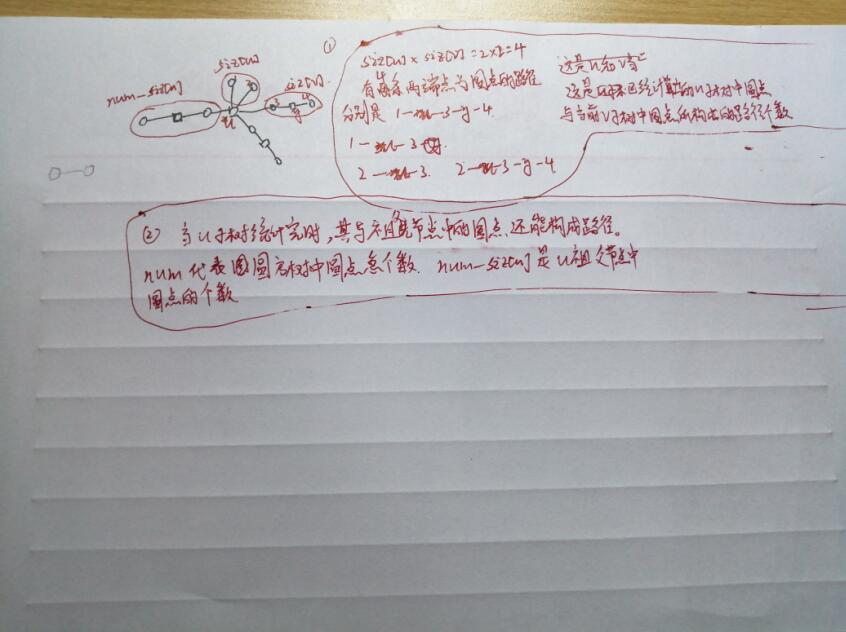 num-siz[u]
siz[u]
siz[v]
u
①
siz[u] × siz[v] = 2×2=4
有4条两端点为圆点的路径
分别是 1-u-3-y-4
1-u-3
2-u-3. 2-u-3-y-4
这是u和v
这是已经计算的u子树中圆点
与当前v子树中圆点所构成的路径个数
② 当u子树统计完时,其与祖先节点中的圆点还能构成路径。
num代表圆方树中圆点总个数. num-siz[u]是u祖父节点中
圆点的个数